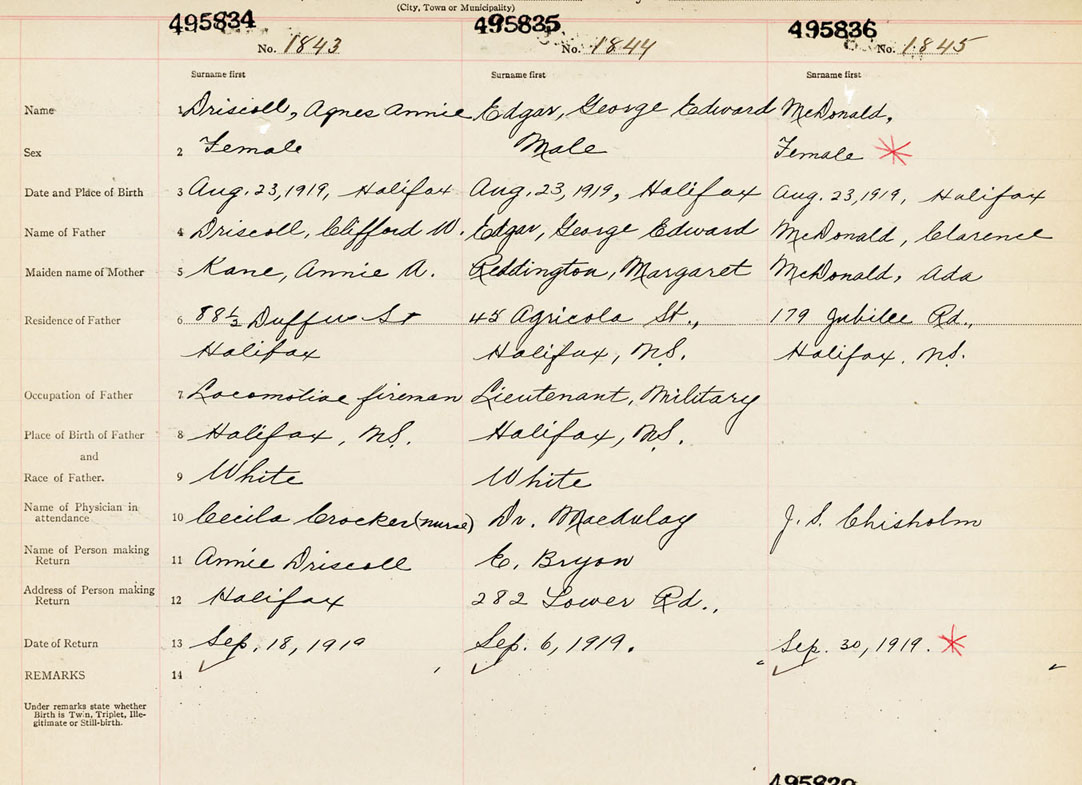 (City, Town or Municipality)
495834 495835 495836
No. 1843 No. 1844 No. 1845
Surname first Surname first Surname first
Name 1 Driscoll, Agnes Annie Edgar, George Edward McDonald,
Sex 2 Female Male Female *
Date and Place of Birth 3 Aug. 23, 1919, Halifax Aug. 23, 1919, Halifax Aug. 23, 1919, Halifax
Name of Father 4 Driscoll, Clifford W. Edgar, George Edward McDonald, Clarence
Maiden name of Mother 5 Kane, Annie A. Reddington, Margaret McDonald, Ada
Residence of Father 6 88½ Duffus St 45 Agricola St., 179 Jubilee Rd.,
Halifax Halifax, N.S. Halifax, N.S.
Occupation of Father 7 Locomotive fireman Lieutenant, Military
Place of Birth of Father 8 Halifax, N.S. Halifax, N.S.
and
Race of Father. 9 White White
Name of Physician in
attendance 10 Cecila Crocker (nurse) Dr. J. S. Chisholm
Name of Person making
Return 11 Annie Driscoll E. Bryon
Address of Person making
Return 12 Halifax 282 Lower Rd.,
Date of Return 13 Sep. 18, 1919 Sep. 6, 1919. Sep. 30, 1919. *
REMARKS 14
Under remarks state whether
Birth is Twin, Triplet, Ille-
gitimate or Still-birth.